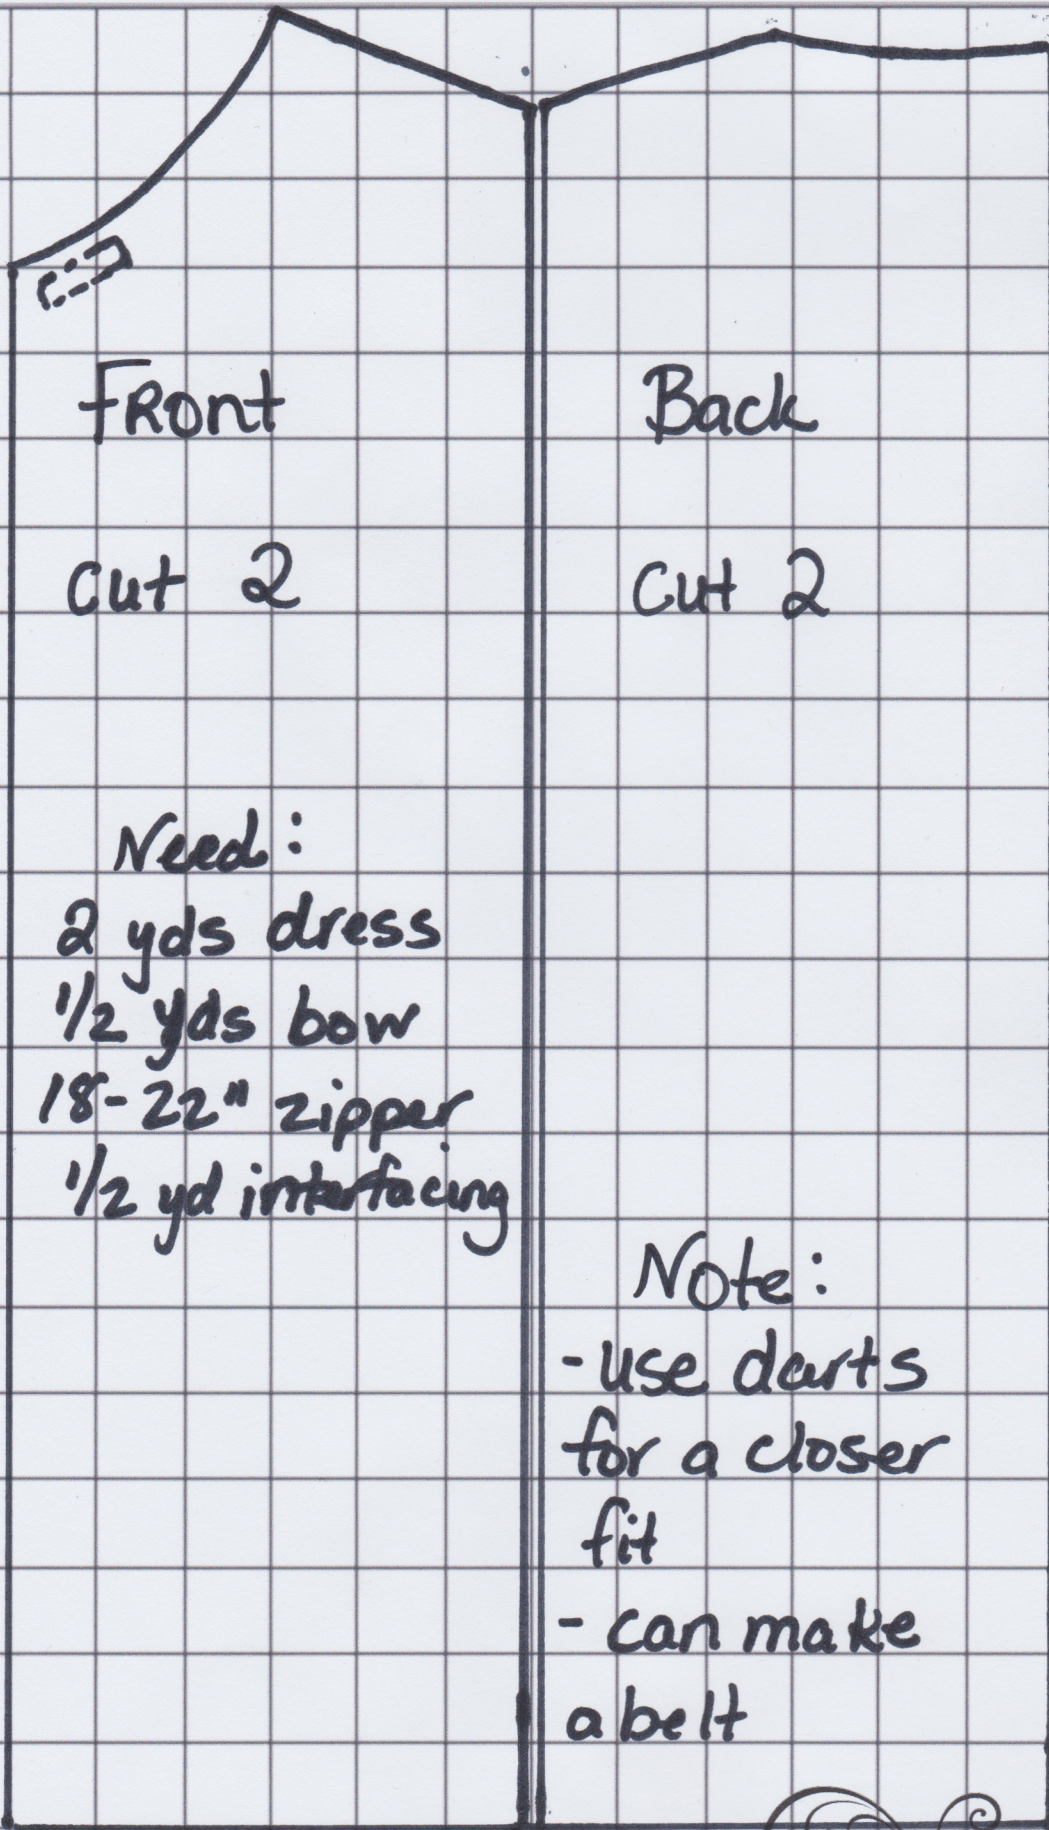 Front
Back
Cut 2
Cut 2
Need:
2 yds dress
1/2 yds bow
18-22" zipper
1/2 yd interfacing
Note:
-use darts
for a closer
fit
- can make
a belt